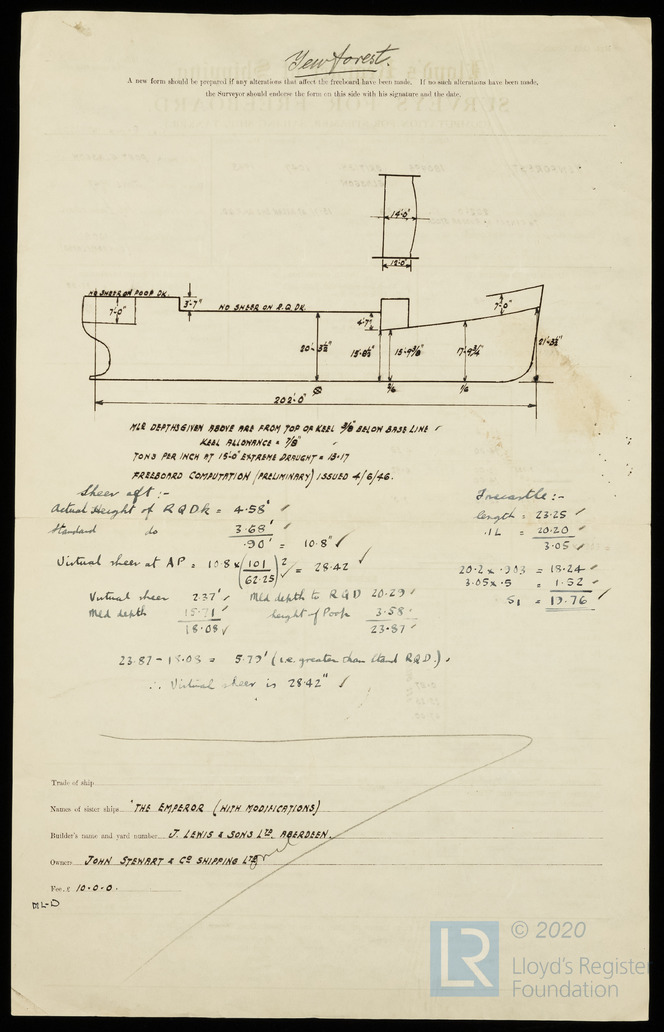 Yewforest.
A new form should be prepared if any alterations that affect the freeboard have been made. If no such alterations have been made,
the Surveyor should endorse the form on this side with his signature and the date.
14'-0"
12'-0"
NO SHEER ON POOP DK.
3'-7"
NO SHEER ON R.Q. DK.
7'-0"
7'-0"
4'-7"
20'-3½"
15'-8½"
15'-9⅜"
17'-9¾"
21'-3½"
202'-0"
MLD DEPTHS GIVEN ABOVE ARE FROM TOP OF KEEL ⅜" BELOW BASE LINE
KEEL ALLOWANCE = 7/8"
TONS PER INCH AT 15'-0" EXTREME DRAUGHT = 13.17
FREEBOARD COMPUTATION (PRELIMINARY) ISSUED 4/6/46.
Sheer aft :-
Forecastle :-
Actual Height of RQDk = 4.58'
length = 23.25
Standard do 3.68'
.1L = 20.20
.90' = 10.8"
3.05
Virtual sheer at AP = 10.8 x (101/62.25)² = 28.42
20.2 x .903 = 18.24
3.05 x .5 = 1.52
S1 = 19.76
Virtual sheer 2.37' Mld depth to RQD 20.29
Mld depth 15.71 height of Poop 3.58
18.08 23.87
23.87 - 18.08 = 5.79' (i.e. greater than stand RQD.)
∴ Virtual sheer is 28.42"
Trade of ship
Names of sister ships "THE EMPEROR (WITH MODIFICATIONS)
Builder's name and yard number J. LEWIS & SONS LTD. ABERDEEN.
Owners JOHN STEWART & CO SHIPPING LTD
Fee, £ 10.0.0.
ML-D
LR
© 2020
Lloyd's Register
Foundation